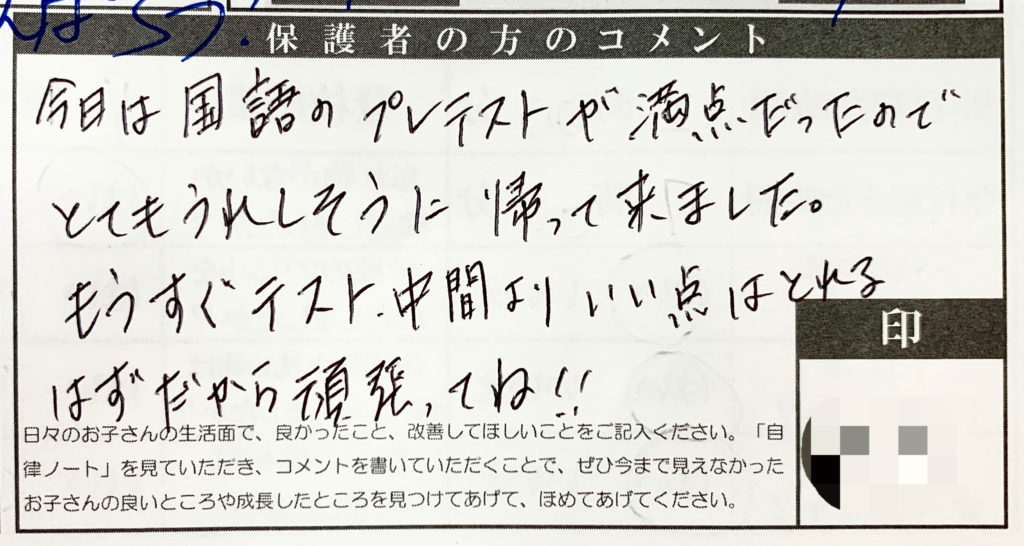 んばろう!
保護者の方のコメント
今日は国語のプレテストが満点だったので
とてもうれしそうに帰って来ました。
もうすぐテスト.中間よりいい点はとれる
はずだから頑張ってね!!
印
日々のお子さんの生活面で、良かったこと、改善してほしいことをご記入ください。「自
律ノート」を見ていただき、コメントを書いていただくことで、ぜひ今まで見えなかった
お子さんの良いところや成長したところを見つけてあげて、ほめてあげてください。